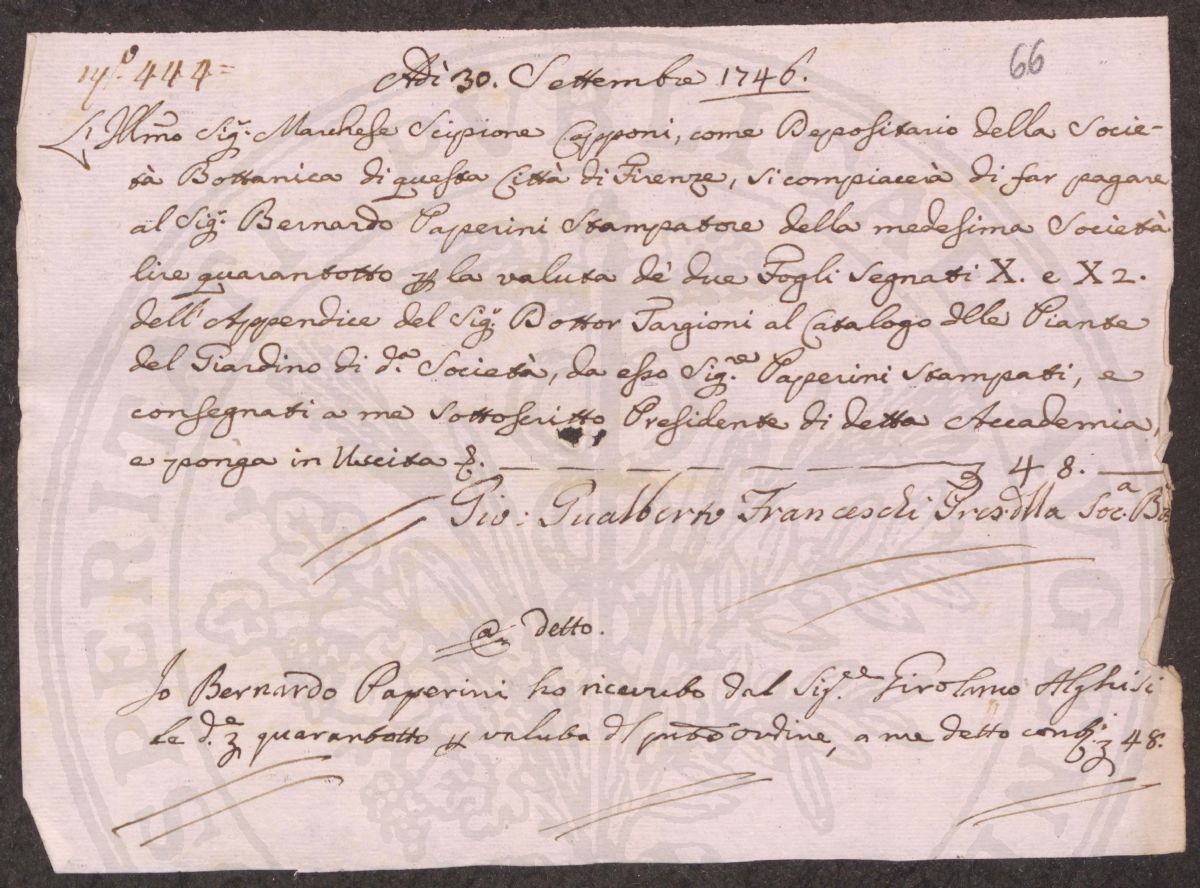 N.º 444=
Adì 30. Settembre 1746.
66
L'Illmo Sigr. Marchese Scipione Capponi, come Depositario della Socie-
tà Bottanica di questa Città di Firenze, si compiacerà di far pagare
al Sigr. Bernardo Paperini Stampatore della medesima Società
lire quarantotto p la valuta dè due Fogli segnati X. e X2.
dell'Appendice del Sigr. Dottor Targioni al Catalogo dlle Piante
del Giardino di da. Società, da esso Sigre. Paperini stampati, e
consegnati a me sottoscritto Presidente di detta Accademia,
e ponga in Uscita 48.
Gio: Gualberto Franceschi Pres. dlla Soca. Bo
@ detto.
Io Bernardo Paperini ho ricevuto dal Sigre. Girolamo Alghisi
Le de. quarantotto p valuta dl ordine, a me detto conti. 48.
PROSPERITATI PVBLICAE AVGENDAE